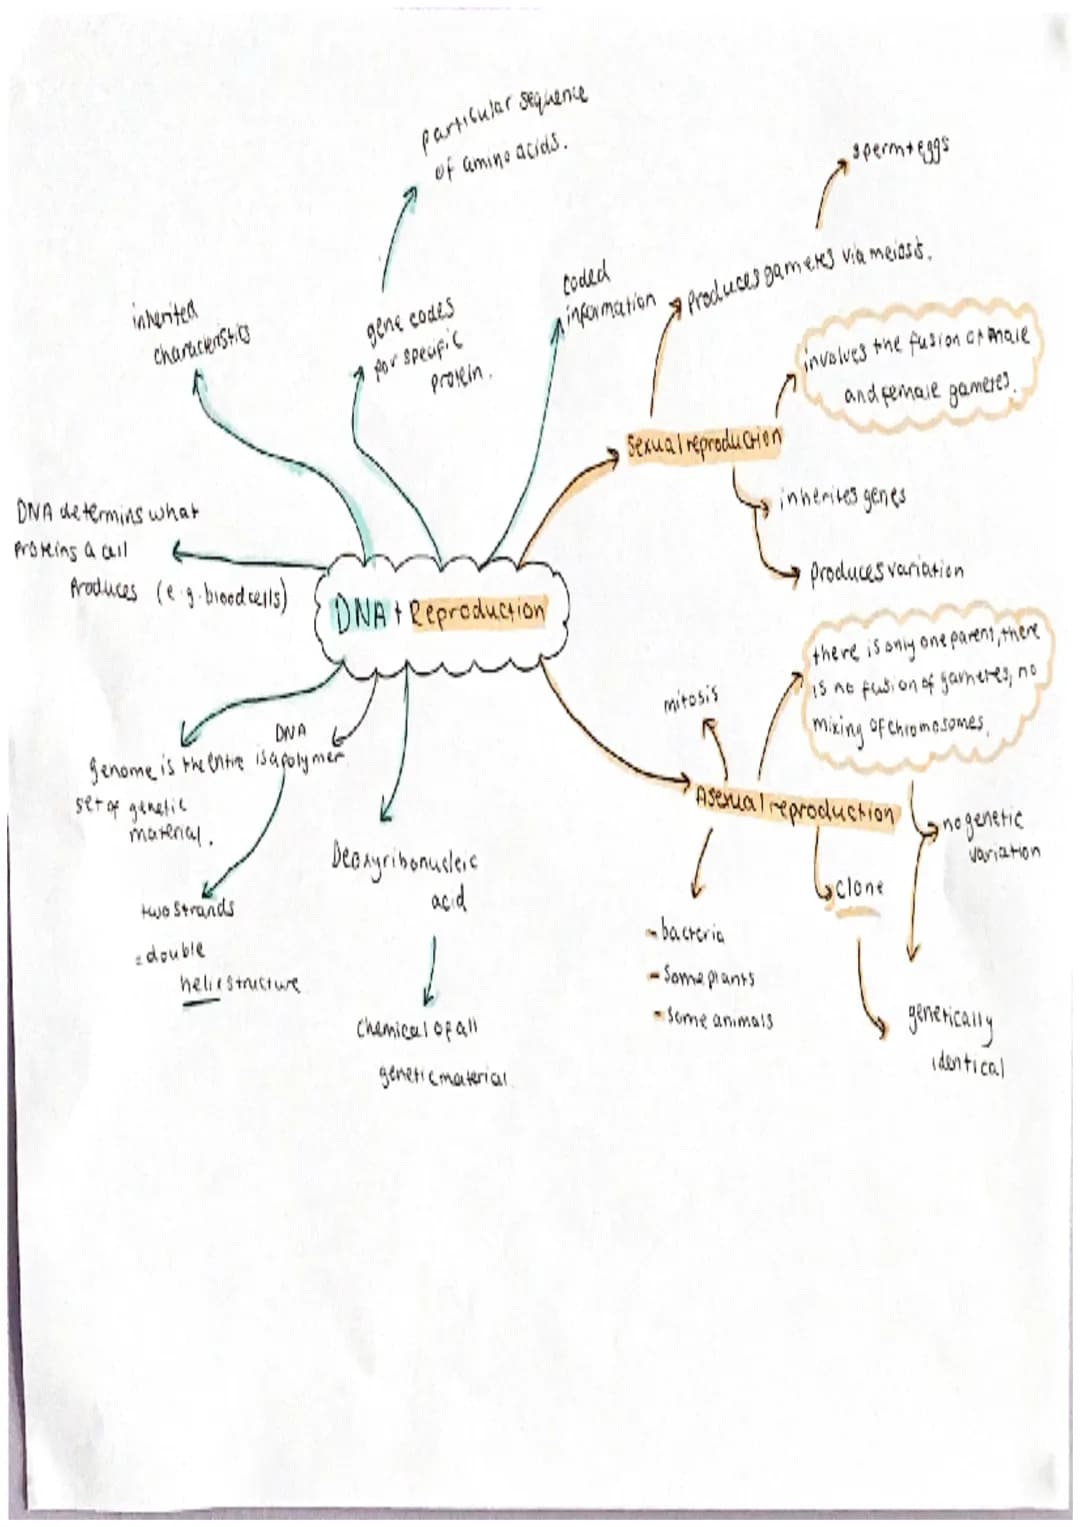 particular sequence
of amino acids.
sperm + eggs
produces gametes via meiosis.
coded
information
inherited
characteristics
gene codes
for specific
protein.
involves the fusion of male
and female gametes.
Sexual reproduction
inherites genes
produces variation
DNA determins what
proteins a cell
produces (e.g. blood cells)
DNA + Reproduction
there is only one parent, there
is no fusion of gametes, no
mixing of chromosomes.
mitosis
Asexual reproduction
no genetic
variation
clone
- bacteria
- some plants
- some animals
genetically
identical
DNA
is a polymer
genome is the entire
set of genetic
material.
two strands
= double
helix structure
Deoxyribonucleic
acid
chemical of all
genetic material